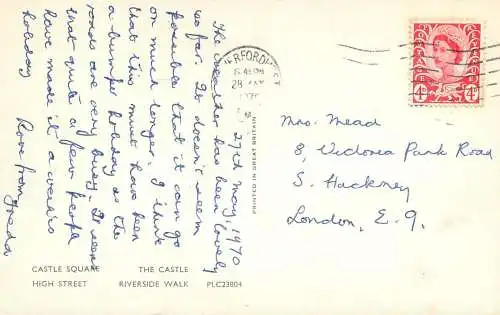 27th May 1970
The weather has been lovely
so far. It doesn't seem
possible that it can go
on much longer. I think
that this must have been
a bumper holiday as the
roads are very busy. It seems
that quite a few people
have made it a week's
holiday Love from
CASTLE SQUARE THE CASTLE
HIGH STREET RIVERSIDE WALK PLC23804
PRINTED IN GREAT BRITAIN
28
4D 4D
Mrs. Mead
8, Victoria Park Road
S. Hackney
London, E. 9.